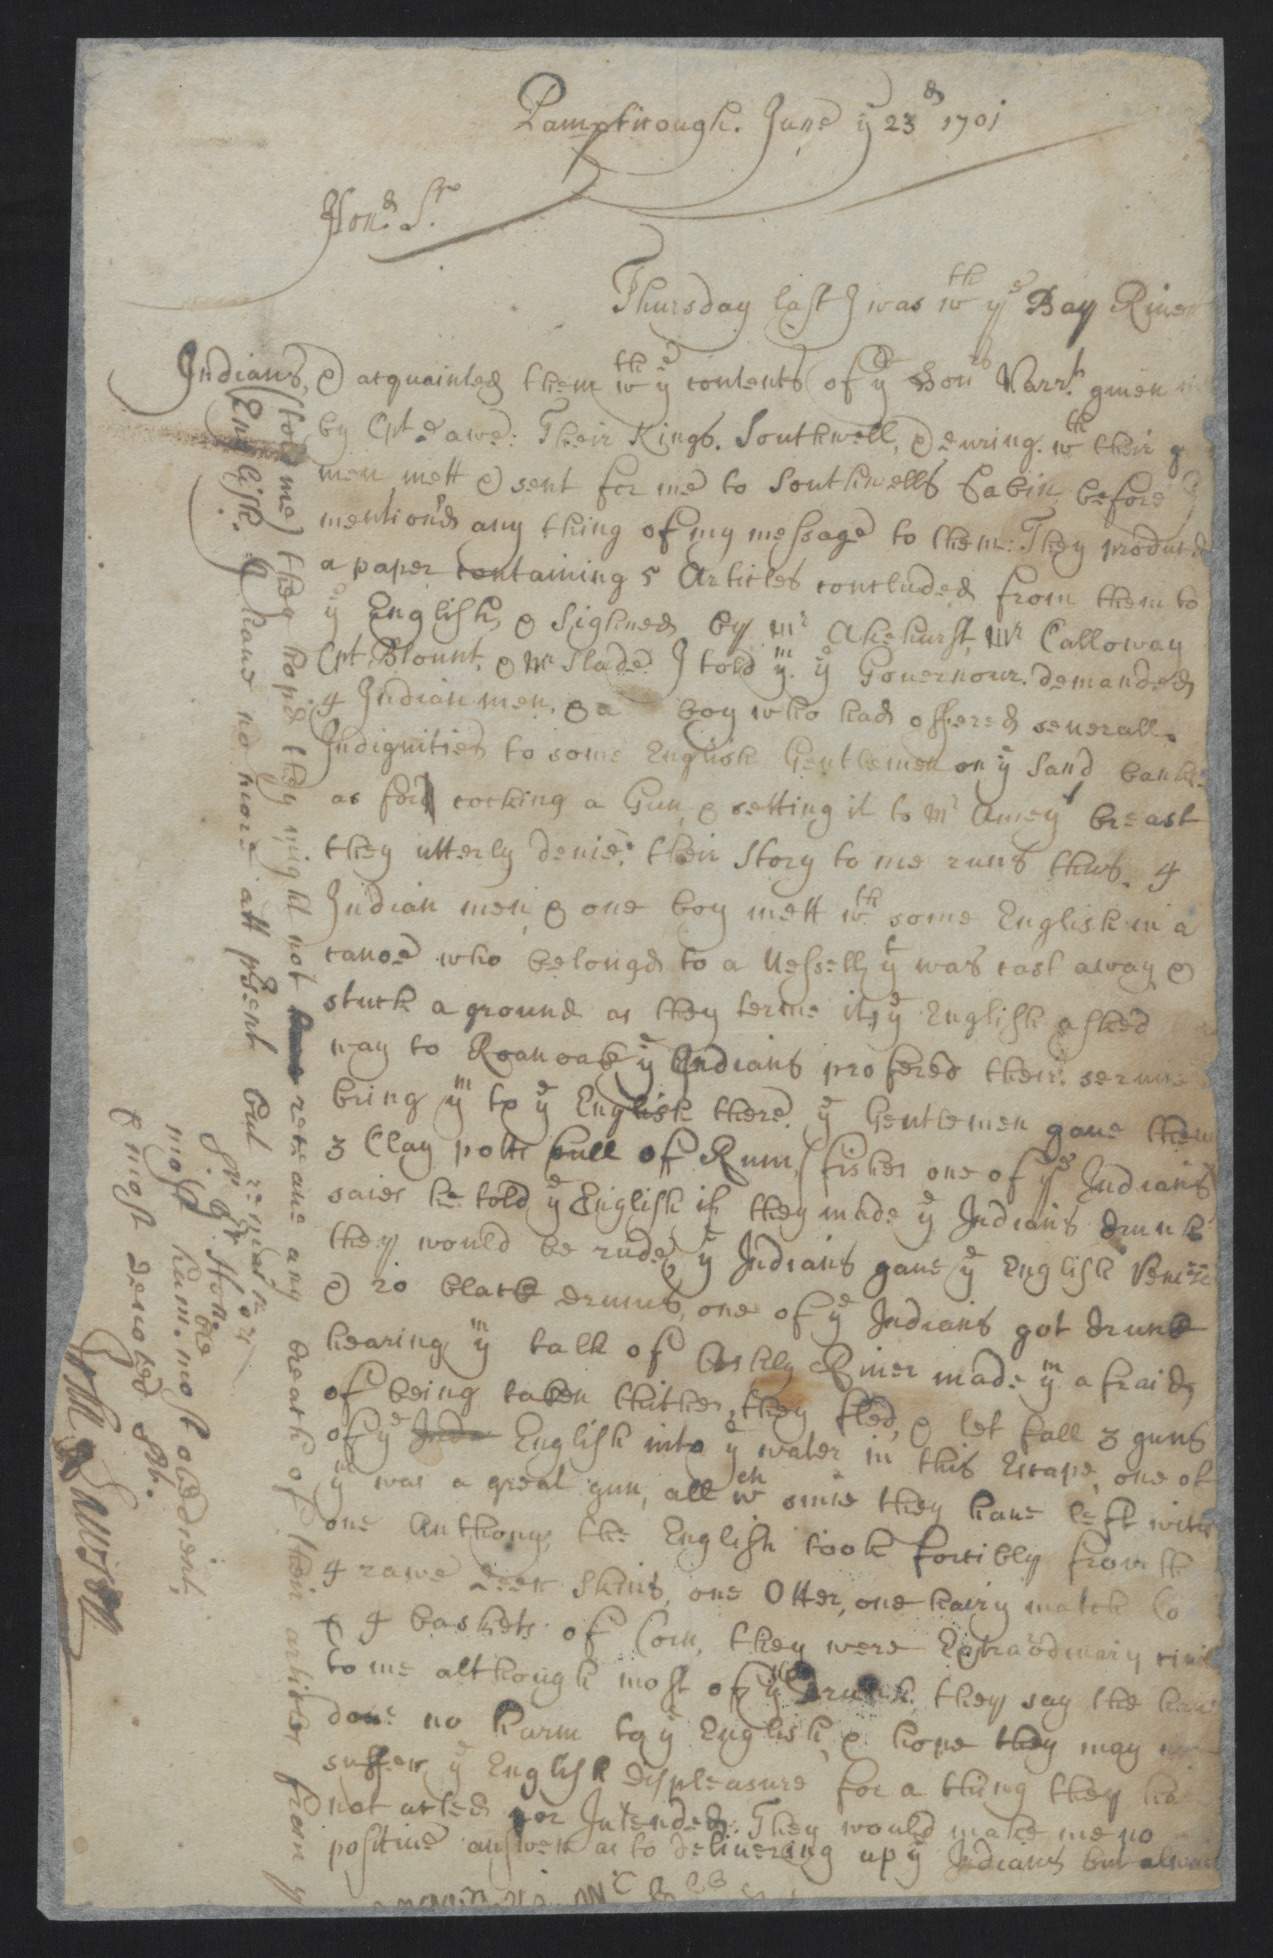 Pampticough. June ye 23d 1701
Hond. Sr.
Thursday last I was wth ye Bay River
Indians, & acquainted them wth ye contents of ye Honbs Warrt. given
by Cpt Dawe: Their Kings. Southwell, & wth their
men mett & sent for me to Southwells Cabin before I
mention'd any thing of my message to them: They produced
a paper containing 5 Articles concluded from them to
ye English, & Signed by mr Akehurst, Mr Calloway
Cpt Blount, & Mr Slade. I told ym. ye Governour. demanded
4 Indian men, & a boy who had offered severall
Indignities to some English Gentlemen on ye Sand banks
as for cocking a Gun, & setting it to Mr Ameys breast
they utterly denie. their Story to me runs thus. 4
Indian men, & one boy mett wth some English in a
canoe who belongd to a Vessell yt was cast away &
stuck a ground as they terme it, ye English asked
way to Roanoak ye Indians profered their service
bring ym to ye English there. ye Gentlemen gave them
3 Clay potts full of Rum, fisher one of ye Indians
saies he told ye English if they made ye Indians drunk
they would be rude, ye Indians gave ye English
& 20 black drums, one of ye Indians got drunk
hearing ym talk of River made ym afraid
of being taken thither, they fled, & let fall 3 guns
of ye Inds English into ye water in this Escape, one of
ym was a great gun, all wch since they have left with
one Anthony, the English took forcibly from
4 rawe Deer Skins, one Otter, one hairy match Co
& 4 baskets of Corn, they were Extraordinary civil
to me although most of ym drunk, they say the have
done no harm to ye English, & hope they may
suffer ye English displeasure for a thing they
not acted nor Intended. They would make me no
positive answer as to delivering up ye Indians but alwaies
(told me) they hop'd they might not receave any breach of their articles from ye
English. I have no more att psent but remain
Sr. yr Honble
most hum. most obedient,
& most devoted St.
John Lawson